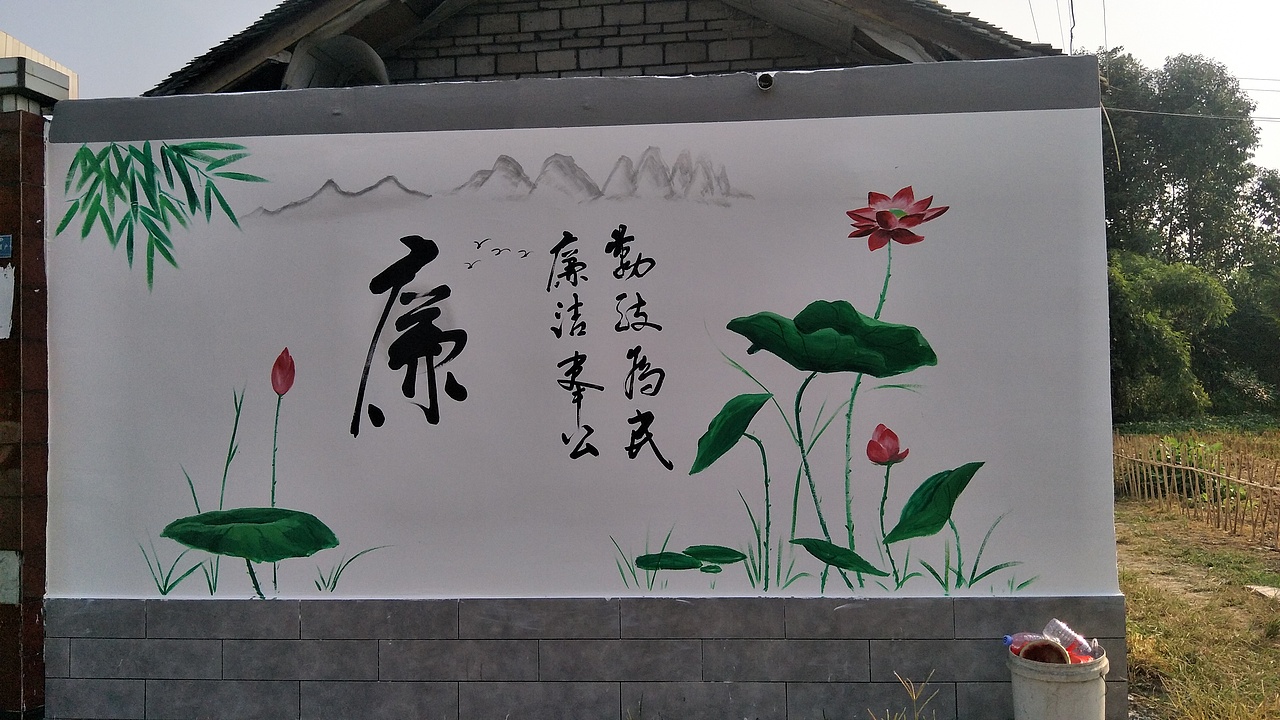 廉
勤政为民
廉洁奉公